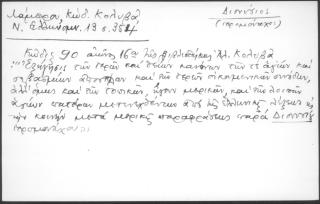 Λάμπρου Κώδ. Κολυβᾶ
Ν. Ἑλληνομν. 13 σ. 354
Διονύσιος
(ἱερομόναχος)
Κῶδιξ 90 αἰῶνος 16ου τῆς βιβλιοθήκης Ἀλ. Κολυβᾶ
"Ἐξήγησις τῶν ἱερῶν καὶ θείων κανόνων τῶν τε ἁγίων καὶ
σεβασμίων ἀποστόλων καὶ τῶν ἱερῶν οἰκουμενικῶν συνόδων,
ἀλλὰ ὅμως καὶ τῶν τοπικῶν, ἤγουν μερικῶν, καὶ τῶν λοιπῶν
ἁγίων πατέρων μετενεχθέντων ἀπὸ τῆς ἑλληνικῆς λέξεως εἰς
τὴν κοινὴν μετὰ μερικῆς παραφράσεως παρὰ Διονυσίου
ἱερομονάχου"